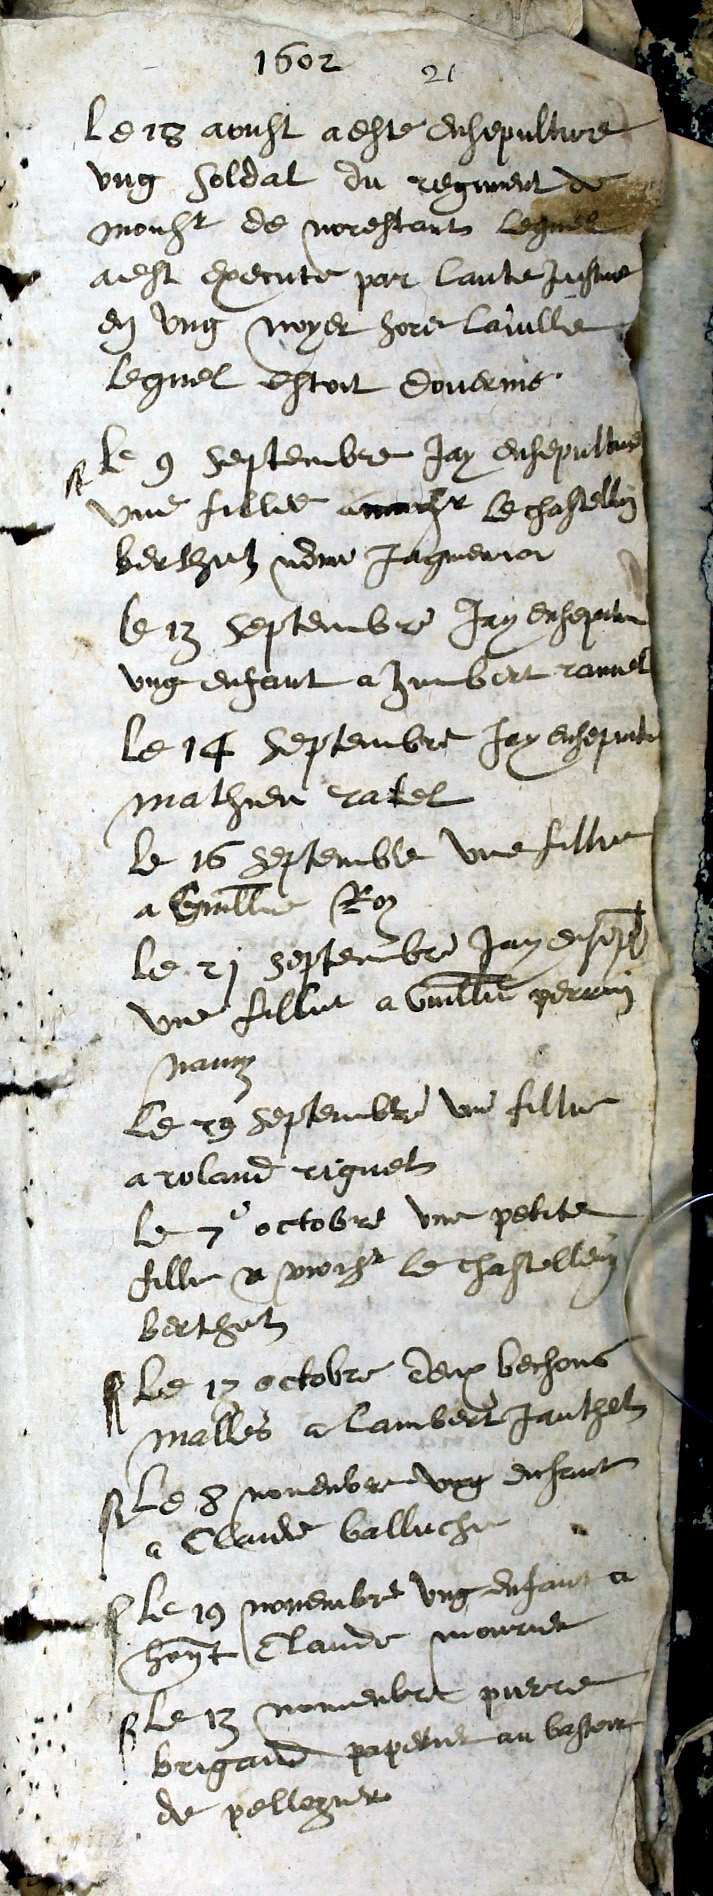 1602 21
Le 18 aoust a este ensepulture
ung soldat du regiment de
monsr de norestant lequel
a est execute par laute Justice
en ung noyer hors la ville
lequel estoit
Le 9 septembre Jay ensepulture
une fillie a le chastellin
berthet nome
le 13 septembre Jay
ung enfant a humbert
Le 14 septembre Jay
mathieu ratel
le 16 septembre une fillie
a Guillme Roy
le 21 septembre Jay
une fillie a Guillme perrin
le 29 septembre une fillie
a roland riguet
le 7e octobre une petite
fillie a monsr le chastellein
berthet
Le 17 octobre deux bessons
malles a lambert Janthet
Le 8 novenbre ung enfant
a Claude balluche
Le 19 novembre ung enfant a
Claude mourier
Le 13 novenbre pierre
brigand papetier au bastoir
de